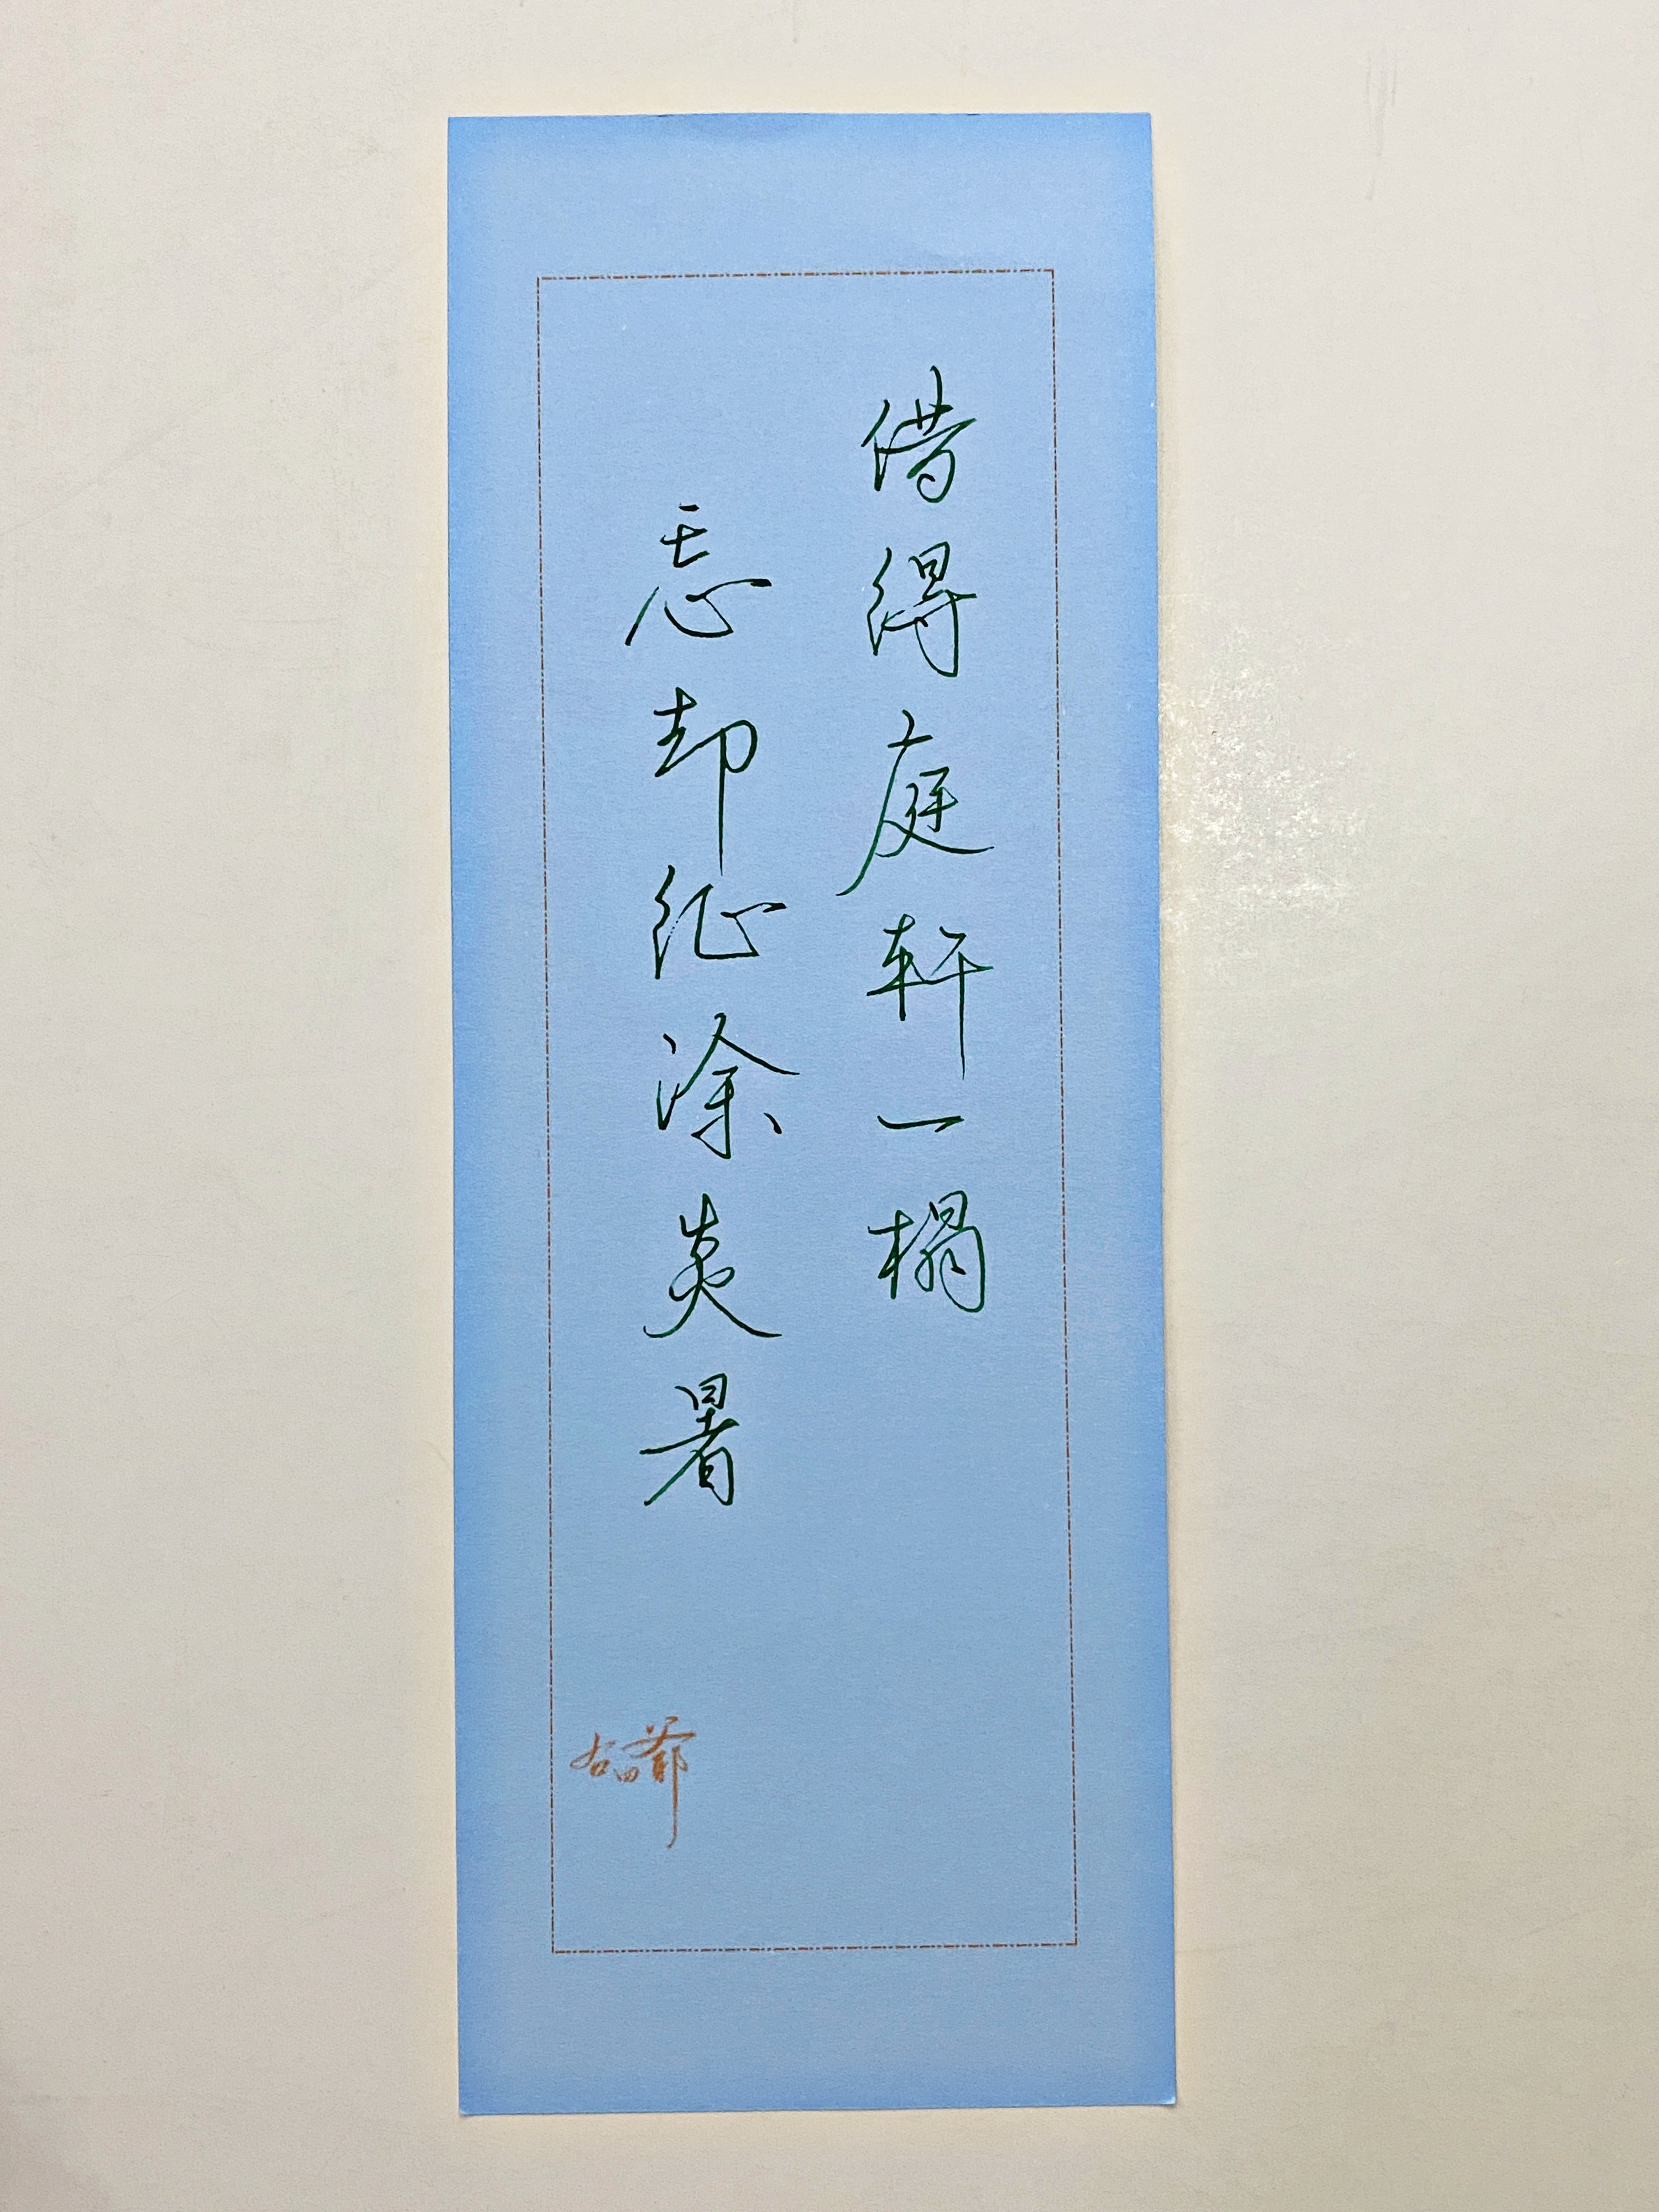 借得庭轩一榻
忘却征涂炎暑